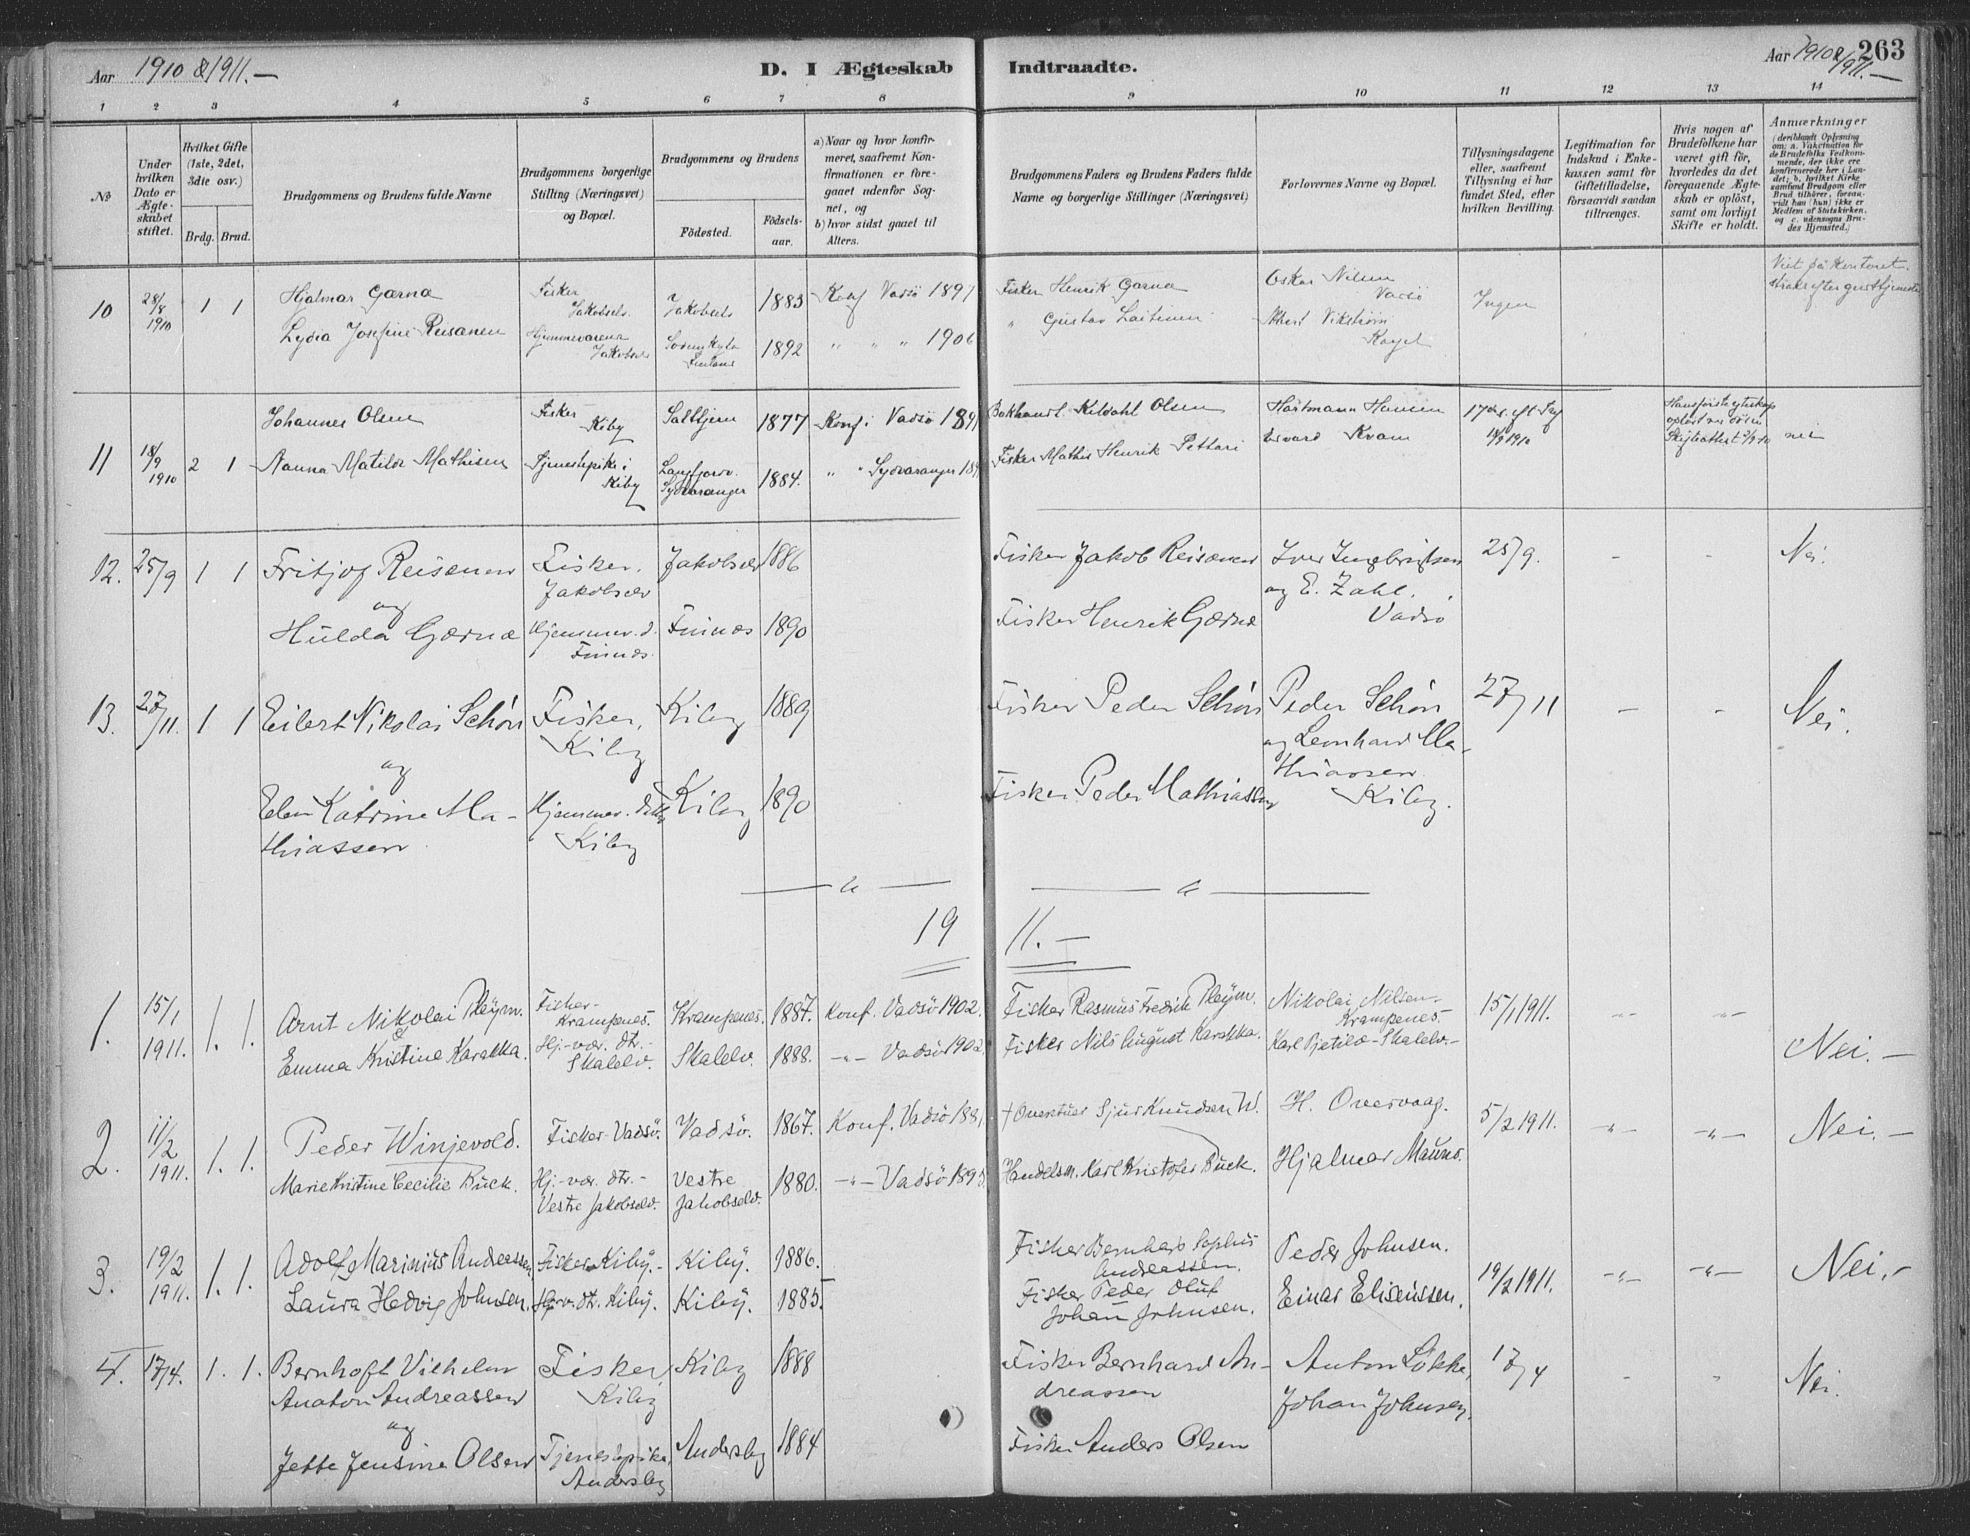 Aar 1910 & 1911.—
D. I Ægteskab Indtraadte.
Aar 1910 & 1911.—
263
1 2 3 4 5 6 7 8 9 10 11 12 13 14
№
Under hvilken Dato er Ægteskabet stiftet.
Hvilket Gifte (1ste, 2det, 3die osv.)
Brdg. Brud.
Brudgommens og Brudens fulde Navne
Brudgommens borgerlige Stilling (Næringsvei) og Bopæl.
Brudgommens og Brudens
Födested.
Födselsaar.
a) Naar og hvor konfirmeret, saafremt Konfirmationen er foregaaet udenfor Sognet, og
b) hvor sidst gaaet til Alters.
Brudgommens Faders og Brudens Faders fulde Navne og borgerlige Stillinger (Næringsvei)
Forlovernes Navne og Bopæl.
Tillysningsdagene eller, saafremt Tillysning ei har fundet Sted, efter hvilken Bevilling.
Legitimation for Indskud i Enkekassen samt for Giftetilladelse, forsaavidt saadan tiltrænges.
Hvis nogen af Brudefolkene har været gift før, hvorledes da det foregaaende Ægteskab er oplöst, samt om lovligt Skifte er holdt.
Anmærkninger
(deriblandt Oplysning om: a. Vakcination for de Brudefolks Vedkommende, der ikke ere konfirmerede her i Landet; b. hvilket Kirkesamfund Brudgom eller Brud tilhörer, forsaavidt han (hun) ikke er Medlem af Statskirken, og c. udensogns Brudes Hjemsted.)
10 28/8 1910 1 1 Hjalmar Gærnæ Fisker Jakobselv. Jakobselv 1883 Konf Vadsø 1897 Fisker Henrik Gærnæ Oskar Nilsen Vadsø Ingen Viet på Kontoret straks efter gudstjeneste
Lydia Josefine Reisænen Hjemmeværende Jakobselv Sodankyla Finland 1892 " " " 1906 " Gustav Laitinen Albert Vikstrøm
11 18/9 1910 2 1 Johannes Olsen Fisker Kiby Saltkjern 1877 Konf i Vadsø 189 Kildahl Olsen Hartmann Hansen 18/9 1910 nei
Nanna Matilde Mathisen Tjenestepike i Kiby Langfjorv. Sydvaranger 1884. " " Sydvaranger 189 Fisker Mathis Henrik Pettari Edvard Kvam
12. 25/9 1 1 Fritjof Reisænen Fisker, Jakobselv Jakobselv 1886 Fisker Jakob Reisænen Iver Ingebrigtsen og E. Zahl. Vadsø 25/9. - - Nei.
og
Hulda Gærnæ Hjemmev. d. Finnæs. Finnæs 1890 Fisker Henrik Gærnæ
13. 27/11. 1 1 Eilert Nikolai Schøn Fisker, Kiby Kiby 1889 Fisker Peder Schøn Peder Schøn og Leonhard Mathiassen Kiby. 27/11 - - Nei.
og
Elen Katrine Mathiassen Hjemmev. datter Kiby Kiby 1890 Fisker Peder Mathiassen
— " — — " —
19 11. —
1. 15/1 1911. 1. 1. Arnt Nikolai Pleÿm. Fisker- Krampenes. Krampenes. 1887. Konf. Vadsø 1902. Fisker Rasmus Fredrik Pleÿm. Nikolai Nilsen- Krampenes- 15/1 1911. -"- -"- Nei.—
&
Emma Kristine Karakka. Hj-vær. dtr.- Skalelv. Skalelv. 1888. -"- Vadsø 1902. Fisker Nils August Karakka. Karl Pjetilæ-Skalelv.-
2. 11/2 1911. 1. 1. Peder Winjevold. Fisker-Vadsø. Vadsø. 1867. Konf. Vadsø 188 † Overtuer Sjur Knudsen W. H. Overvaag. 5/2 1911. -"- -"- Nei.—
Marie Kristine Cecilie Buck. Hj.-vær. dtr.- Vestre Jakobselv. Vestre Jakobselv. 1880. -"- Vadsø 1895. Handelsm. Karl Kristofer Buck. Hjalmar Mauno.
3. 19/2 1911. 1. 1. Adolf Marinius Andreassen Fisker Kiby.- Kiby. 1886. Fisker Bernhard Sophus Andreassen. Peder Johnsen. 19/2 1911. -"- -"- Nei.-
Laura Hedvig Johnsen. Hj-v. dtr. Kiby. Kiby. 1885. Fisker Peder Oluf Johan Johnsen. Einar Eliseussen.
4. 17/4. 1. 1. Bernhoft Vilhelm Anaton Andreassen Fisker, Kiby Kiby 1888 Fisker Bernhard Andreassen Anton Løkke, Johan Johnsen. 17/4 - - Nei.
og
Jette Jensine Olsen Tjenestepike, Andersby Andersby 1884 Fisker Anders Olsen